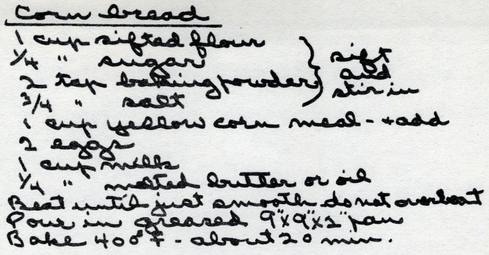 Corn bread
1 cup sifted flour
1/4 " sugar
2 tsp baking powder } sift and stir in
3/4 " salt
1 cup yellow corn meal - + add
2 eggs
1 cup milk
1/4 " melted butter or oil
Beat until just smooth do not overbeat
Pour in greased 9"x9"x2" pan
Bake 400° F - about 20 min.